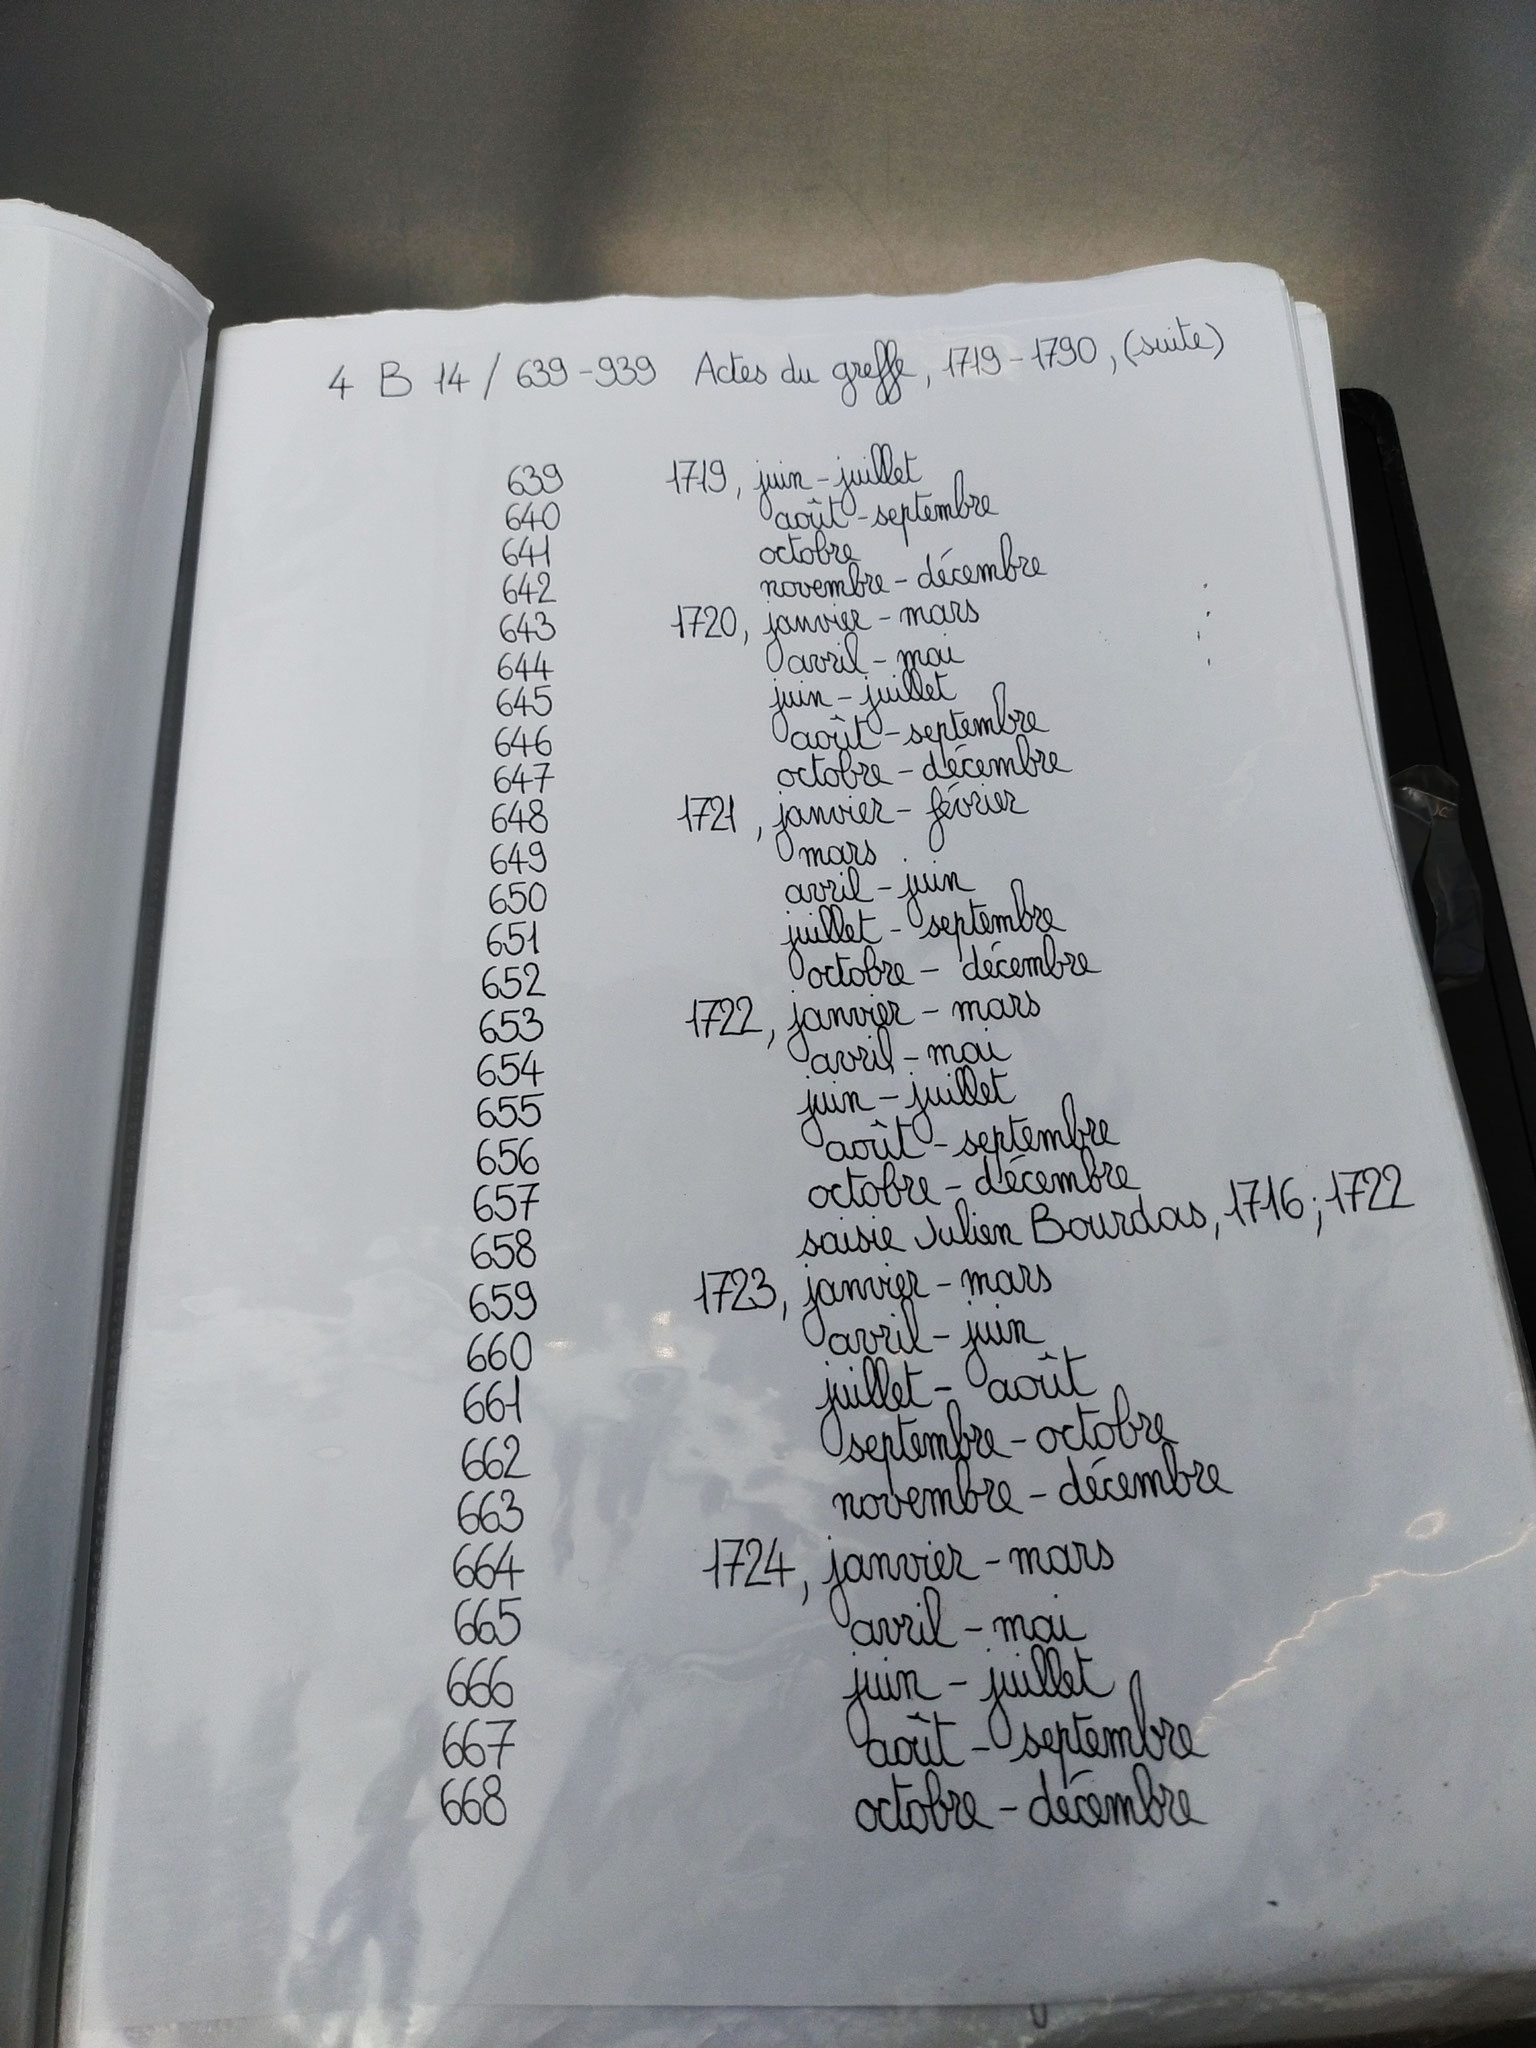 4 B 14 / 639-939 Actes du greffe, 1719-1790, (suite)
639 1719, juin-juillet
640 août-septembre
641 octobre
642 novembre-décembre
643 1720, janvier-mars
644 avril-mai
645 juin-juillet
646 août-septembre
647 octobre-décembre
648 1721, janvier-février
649 mars
650 avril-juin
651 juillet-septembre
652 octobre-décembre
653 1722, janvier-mars
654 avril-mai
655 juin-juillet
656 août-septembre
657 octobre-décembre
658 saisie Julien Bourdas, 1716; 1722
659 1723, janvier-mars
660 avril-juin
661 juillet-août
662 septembre-octobre
663 novembre-décembre
664 1724, janvier-mars
665 avril-mai
666 juin-juillet
667 août-septembre
668 octobre-décembre